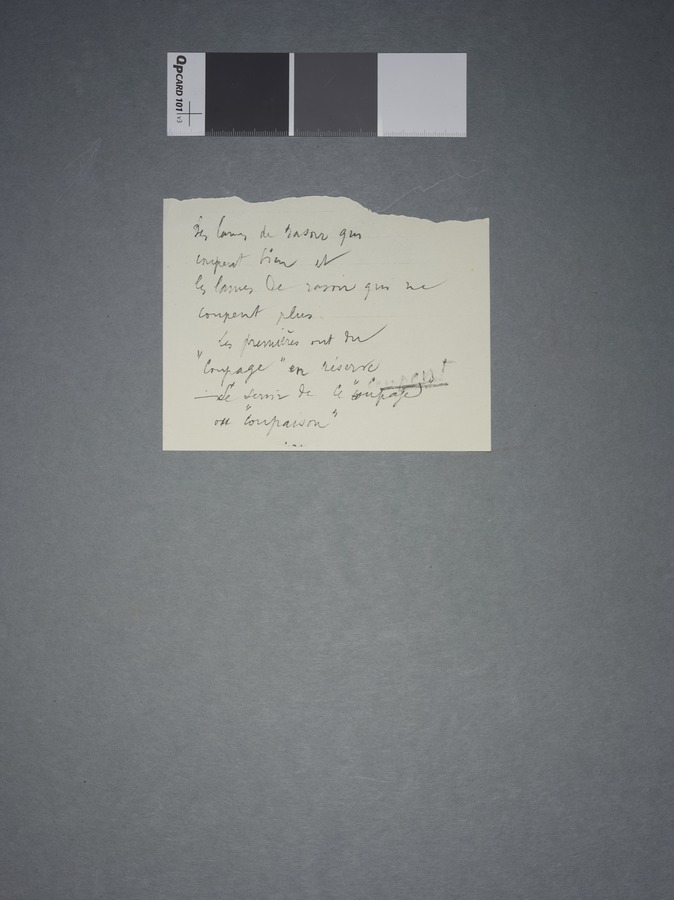 QPCARD 101 v3
Les lames de rasoir qui
coupent bien et
les lames de rasoir qui ne
coupent plus.
Les premières ont du
"Coupage" en réserve
— Se servir de ce "coupage"
ou "Coupaison"